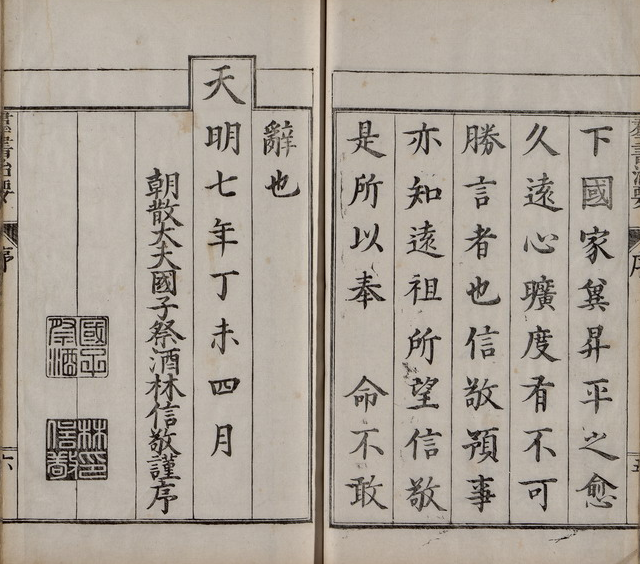 下國家冀昇平之愈
久遠心曠度有不可
勝言者也信敬預事
亦知遠祖所望信敬
是所以奉　命不敢
辭也
天明七年丁未四月
朝散大夫國子祭酒林信敬謹序
國子祭酒
林印信敬
群書治要
序
六
群書治要
序
五